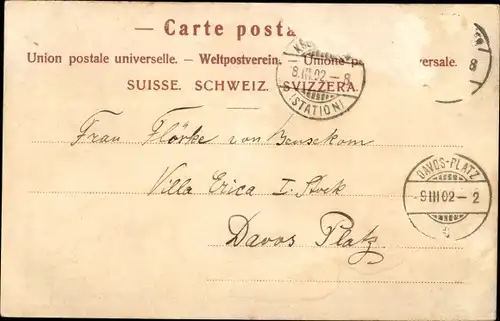 — Carte posta
Union postale universelle. – Weltpostverein. – Unione p versale.
SUISSE. SCHWEIZ. SVIZZERA.
8.III.02 – 8
(STATION)
8
Frau Flörke von Beusekom
Villa Erica I. Stock
Davos Platz
DAVOS-PLATZ
-9III02- 2